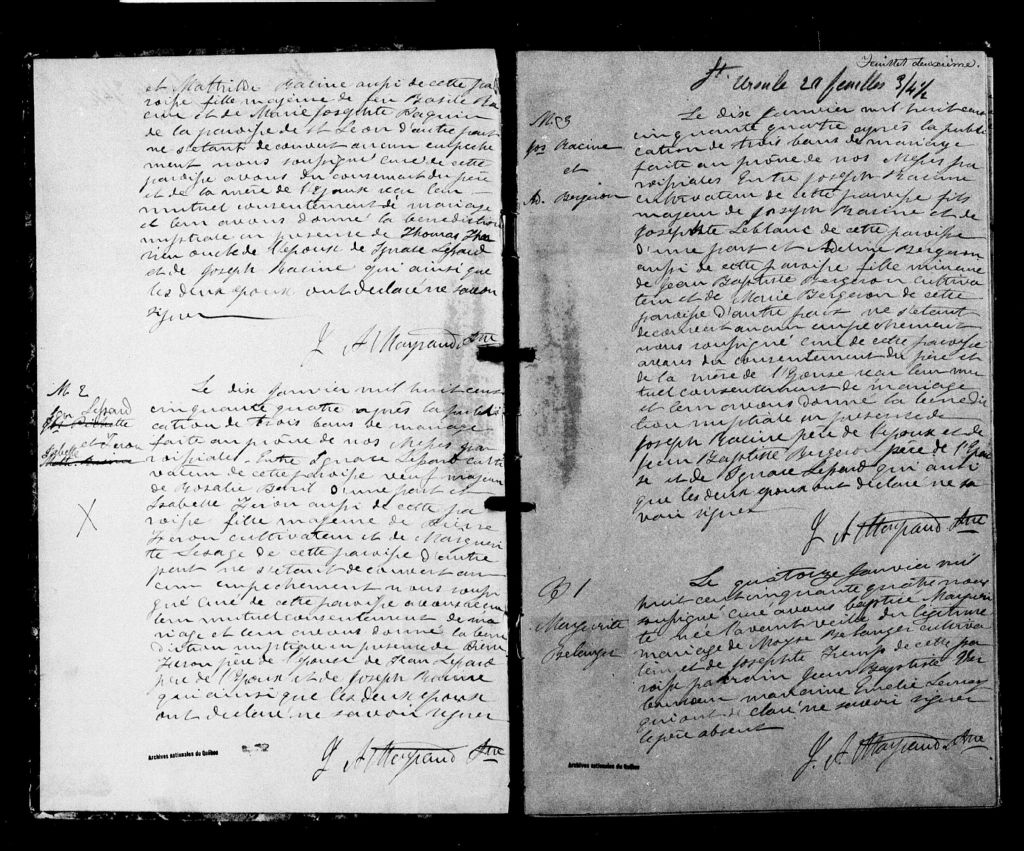 et Mathilde Racine aussi de cette pa
roisse fille majeure de feu Basile Ra
cine et de Marie Josephte Paquin
de la paroisse de St Leon d'autre part
ne s'etant decouvert aucun empeche
ment nous soussigné curé de cette
paroisse avons du consentement du père
et de la mère de l'Epoux reçu leur
mutuel consentement de mariage
et leur avons donné la benediction
nuptiale en presence de Thomas
rien oncle de l'epouse de Ignace Lessard
et de Joseph Racine qui ainsi que
les deux epoux ont declaré ne savoir
signer
J A Maysrand Ptre
M 2
Ign Lessard
et
Isabelle Feron
Le dix Janvier mil huit cent
cinquante quatre après la publi
cation de trois bans de mariage
faite au prône de nos Messes pa
roissiales Entre Ignace Lessard culti
vateur de cette paroisse veuf majeur
de Rosalie d'une part et
Isabelle Feron aussi de cette pa
roisse fille majeure de Pierre
Feron cultivateur et de Margueri
te Lesage de cette paroisse d'autre
part ne s'etant decouvert au
cun empechement nous soussi
gné curé de cette paroisse avons reçu
leur mutuel consentement de ma
riage et leur avons donné la bene
diction nuptiale en presence de Pierre
Feron père de l'epouse de Jean Lessard
père de l'Epoux et de Joseph Racine
qui ainsi que les deux epoux
ont declaré ne savoir signer
J A Maysrand Ptre
Archives nationales du Québec
Feuillet deuxième.
St Ursule 20 feuilles 3/4
M 3
Jos Racine
et
A. Bergeron
Le dix Janvier mil huit cent
cinquante quatre après la publi
cation de trois bans de mariage
faite au prône de nos Messes pa
roissiales Entre Joseph Racine
cultivateur de cette paroisse fils
majeur de Joseph Racine et de
Josephte Leblanc de cette paroisse
d'une part et Adeline Bergeron
aussi de cette paroisse fille mineure
de Jean Baptiste Bergeron cultiva
teur et de Marie Bergeron de cette
paroisse d'autre part ne s'etant
decouvert aucun empechement
nous soussigné curé de cette paroisse
avons du consentement du père et
de la mère de l'Epouse reçu leur mu
tuel consentement de mariage
et leur avons donné la benedic
tion nuptiale en presence de
Joseph Racine père de l'epoux et de
Jean Baptiste Bergeron père de l'Epou
se et de Ignace Lessard qui ainsi
que les deux epoux ont declaré ne sa
voir signer
J A Maysrand Ptre
B 1
Marguerite
Belanger
Le quatorze Janvier mil
huit cent cinquante quatre nous
soussigné curé avons baptisé Margueri
te née l'avant veille du légitime
mariage de Moyse Belanger cultiva
teur et de Josephte de cette pa
roisse parrain Jean Baptiste
marraine Emelie
qui ont declaré ne savoir signer
le père absent
J. A Maysrand Ptre
Archives nationales du Québec